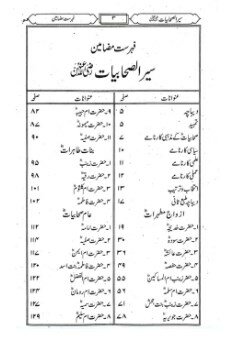 سیر الصحابیات ۳ فہرست مضامین
فہرست مضامین
سیر الصحابیات
عنوانات صفحہ
دیباچہ ۵
تمہید ۵
صحابیات کے مذہبی کارنامے ۷
سیاسی کارنامے ۱۰
علمی کارنامے ۱۱
عملی کارنامے ۱۲
انتخاب و ترتیب ۱۳
دیباچہ طبع ثانی ۱۷
ازواج مطہرات
۱۔ حضرت خدیجہ ۱۹
۲۔ حضرت سودہ ۳۰
۳۔ حضرت عائشہ
۴۔ حضرت حفصہ ۴۹
۵۔ حضرت زینب ام المساکین ۵۵
۶۔ حضرت ام سلمہ
۷۔ حضرت زینب بنت جحش ۷۱
۸۔ حضرت جویریہ ۷۸
عنوانات صفحہ
۹۔ حضرت ام حبیبہ ۸۲
۱۰۔ حضرت میمونہ ۸۷
۱۱۔ حضرت صفیہ ۹۰
بنات طاہرات
۱۔ حضرت زینب ۹۵
۲۔ حضرت رقیہ ۹۸
۳۔ حضرت ام کلثوم ۱۰۱
۴۔ حضرت فاطمہ ۱۰۲
عام صحابیات
۱۔ حضرت امامہ ۱۱۲
۲۔ حضرت صفیہ ۱۱۴
۳۔ حضرت ام ایمن ۱۱۷
۴۔ حضرت فاطمہ بنت اسد ۱۲۰
۵۔ حضرت ام الفضل ۱۲۲
۶۔ حضرت ام رومان
۷۔ حضرت سمیہ ۱۲۷
۸۔ حضرت ام سلیم ۱۲۹